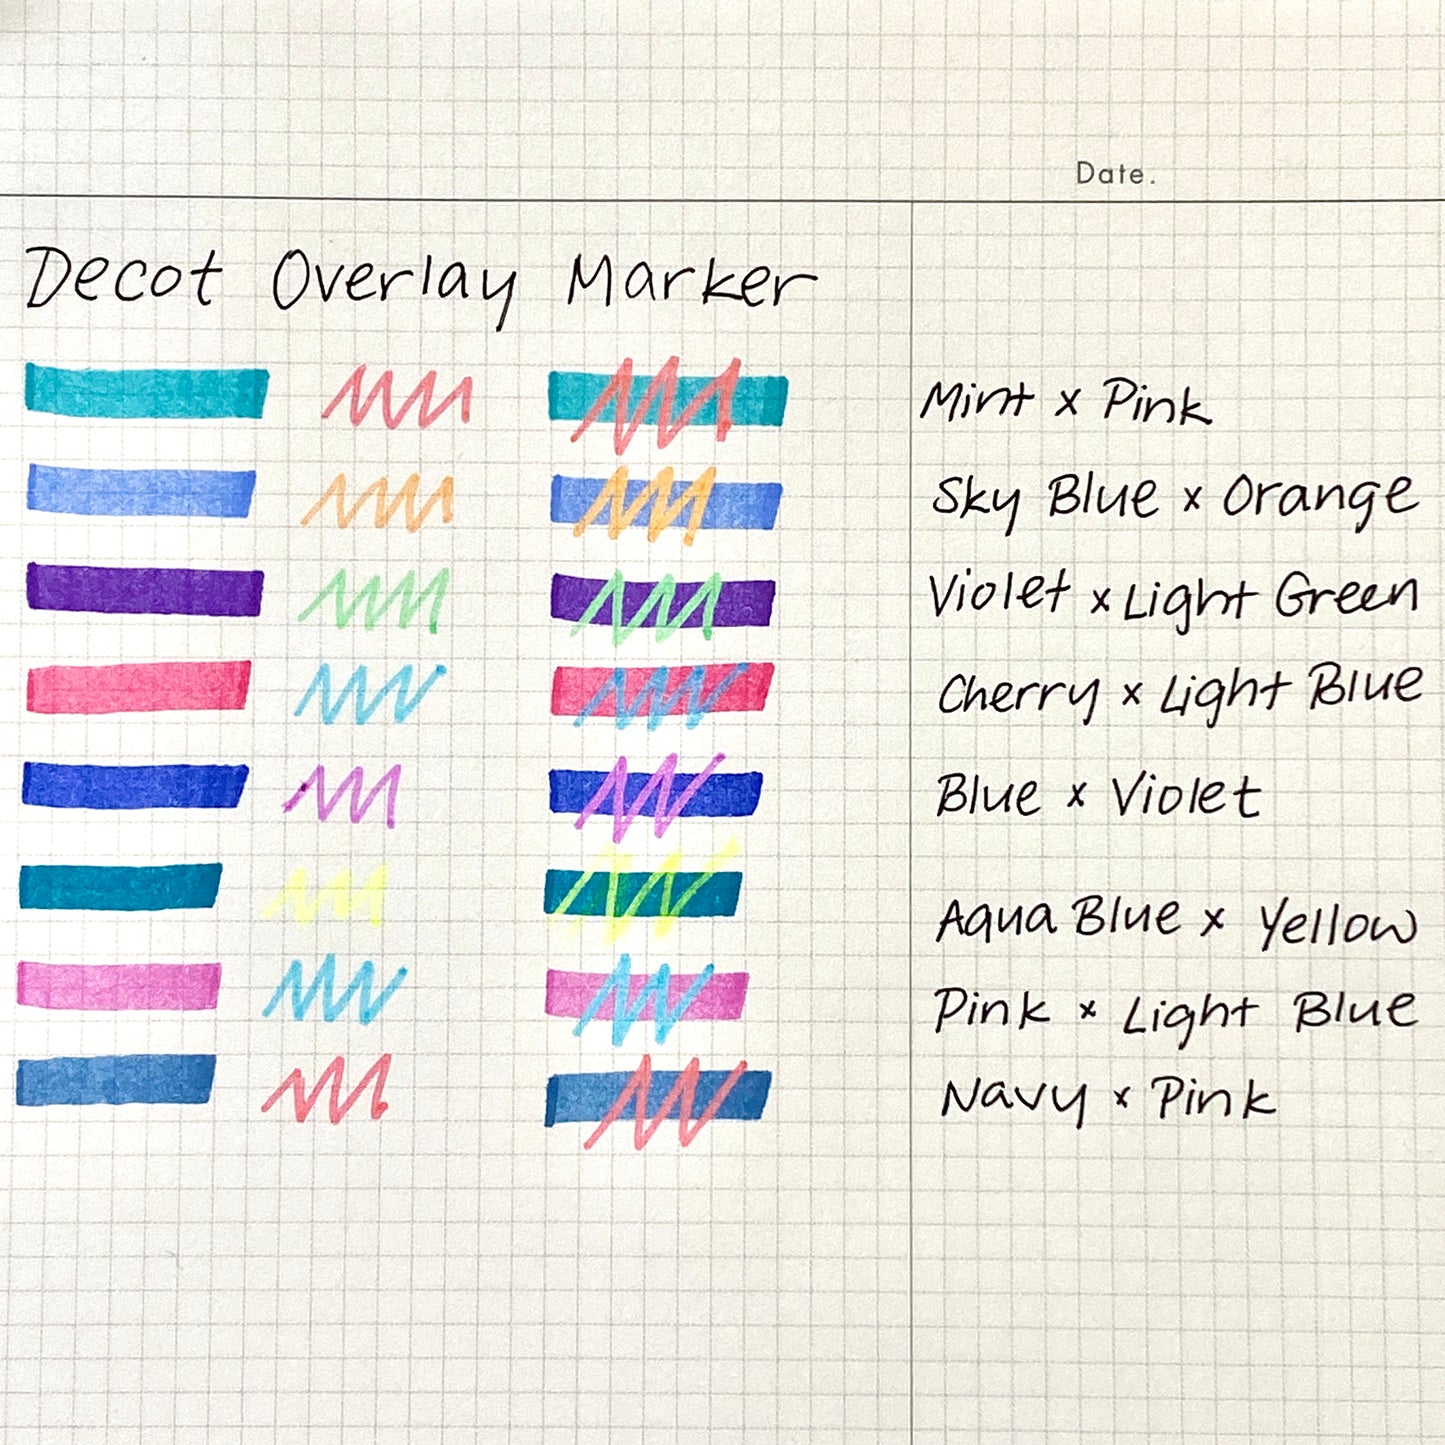 Date.
Decot Overlay Marker
Mint x Pink
Sky Blue x Orange
Violet x Light Green
Cherry x Light Blue
Blue x Violet
Aqua Blue x Yellow
Pink x Light Blue
Navy x Pink